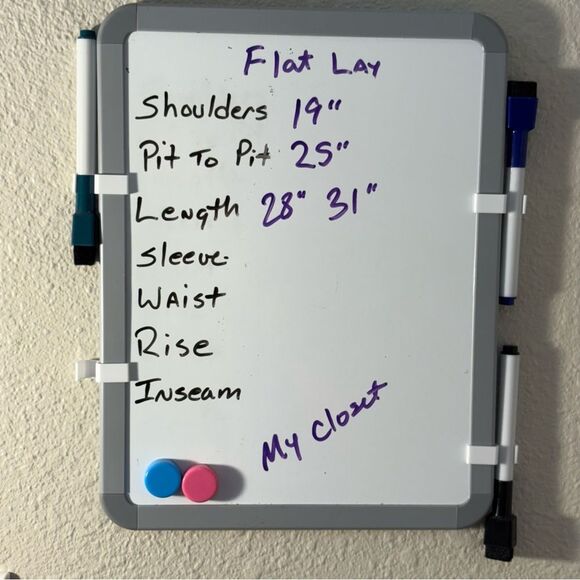 Flat Lay
Shoulders 19"
Pit To Pit 25"
Length 28" 31"
Sleeve
Waist
Rise
Inseam
My Closet